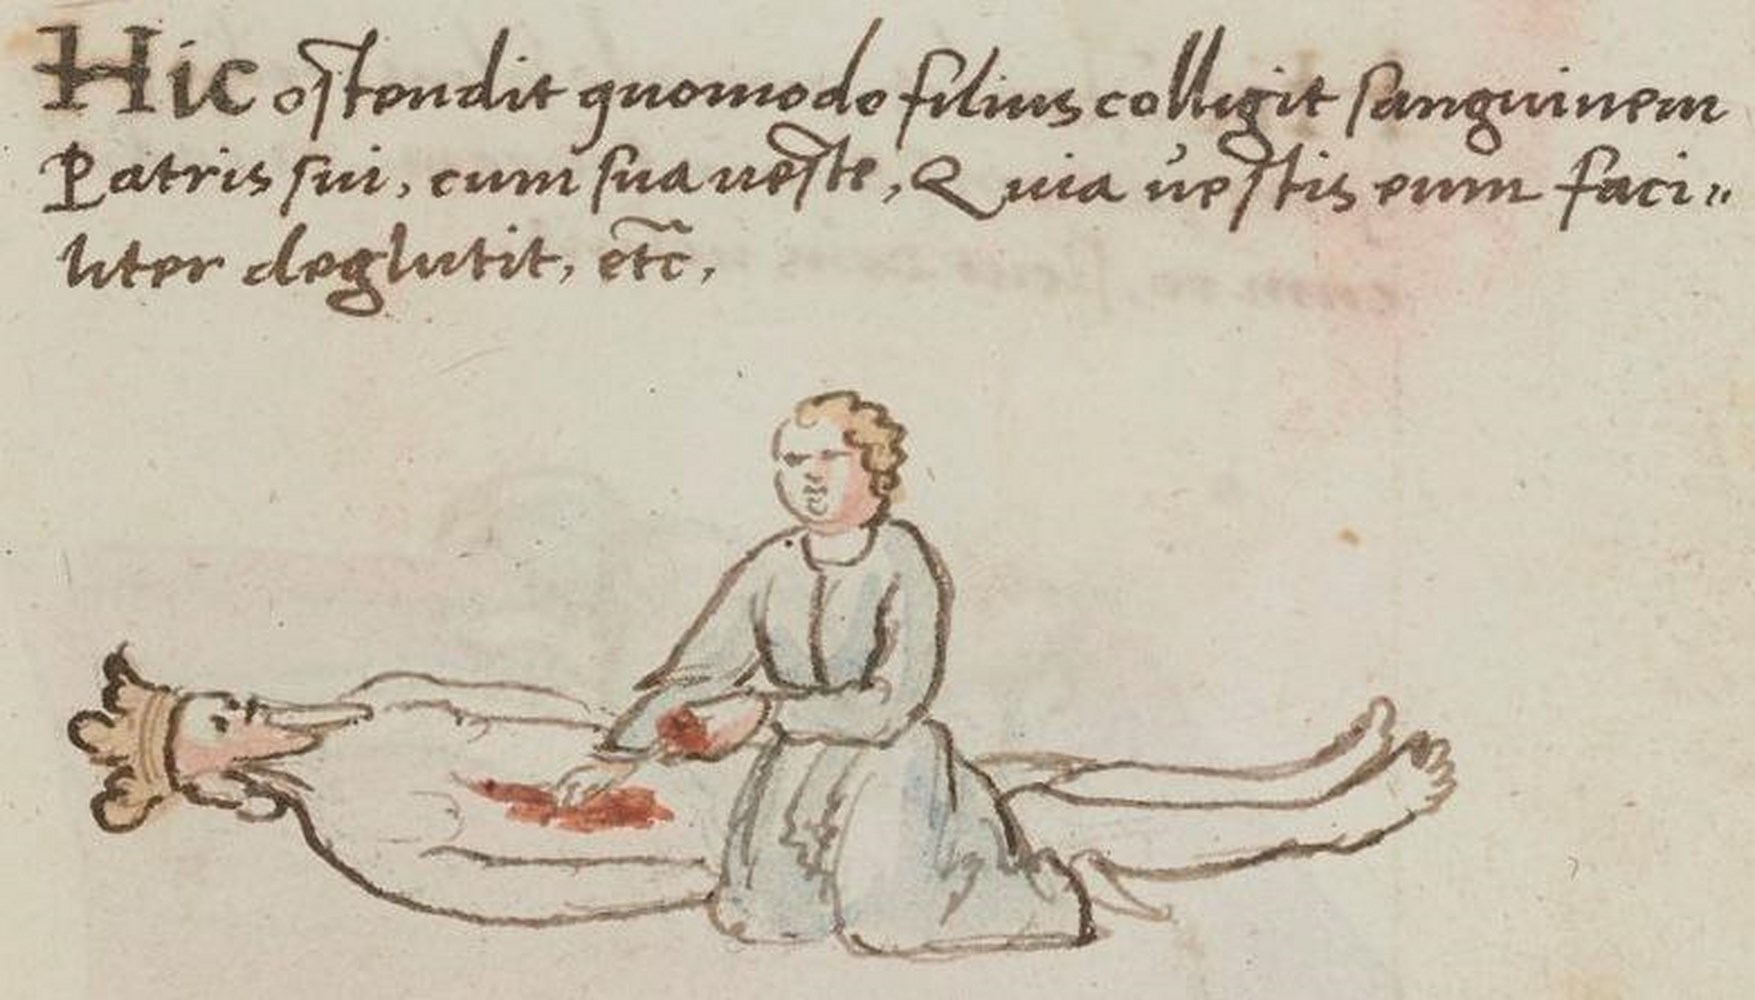 Hic ostendit quomodo filius colligit sanguinem
Patris sui, cum sua ueste, Quia uestis eum faci„
liter deglutit, etc,